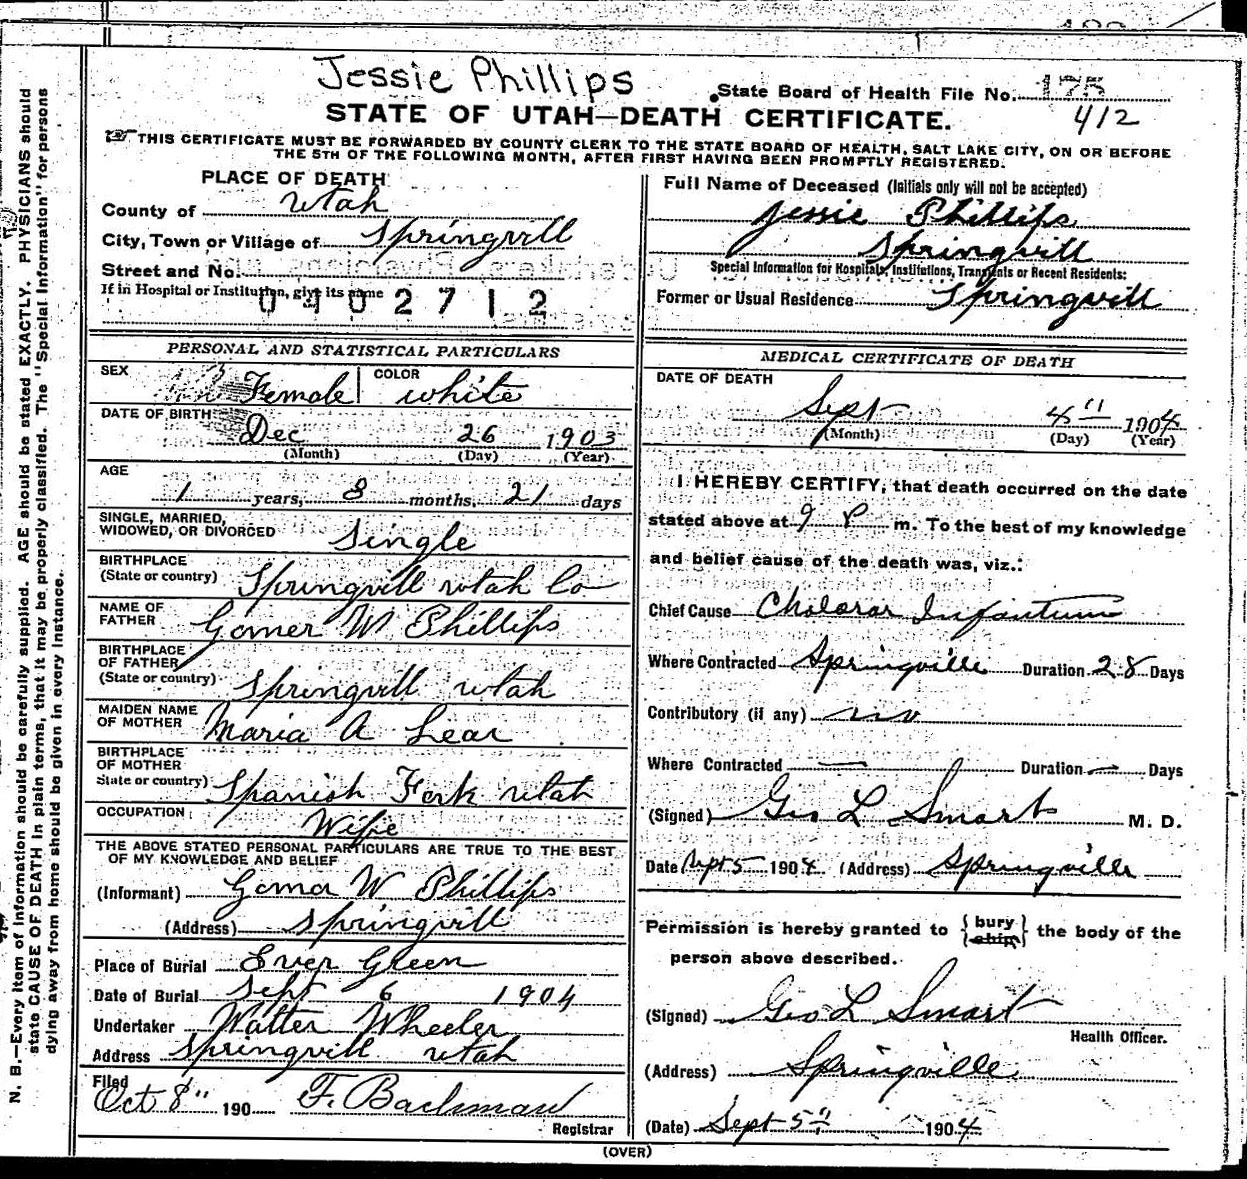 Jessie Phillips
State Board of Health File No. 175
STATE OF UTAH—DEATH CERTIFICATE.
412
THIS CERTIFICATE MUST BE FORWARDED BY COUNTY CLERK TO THE STATE BOARD OF HEALTH, SALT LAKE CITY, ON OR BEFORE
THE 5TH OF THE FOLLOWING MONTH, AFTER FIRST HAVING BEEN PROMPTLY REGISTERED.
PLACE OF DEATH
County of Utah
City, Town or Village of Springvill
Street and No.
If in Hospital or Institution, give its name
0402712
PERSONAL AND STATISTICAL PARTICULARS
SEX Female COLOR white
DATE OF BIRTH Dec 26 1903
(Month) (Day) (Year)
AGE
1 years, 8 months, 21 days
SINGLE, MARRIED,
WIDOWED, OR DIVORCED Single
BIRTHPLACE
(State or country) Springvill utah Co
NAME OF
FATHER Gomer W Phillips
BIRTHPLACE
OF FATHER
(State or country) Springvill utah
MAIDEN NAME
OF MOTHER Maria A Lear
BIRTHPLACE
OF MOTHER
State or country) Spanish Fork utah
OCCUPATION Wife
THE ABOVE STATED PERSONAL PARTICULARS ARE TRUE TO THE BEST
OF MY KNOWLEDGE AND BELIEF
(Informant) Gomer W Phillips
(Address) Springvill
Place of Burial Ever Green
Date of Burial Sept 6 1904
Undertaker Walter Wheeler
Address Springvill utah
Filed
Oct 8" 190 F. Bachman
Registrar
Full Name of Deceased (Initials only will not be accepted)
Jessie Phillips
Springvill
Special Information for Hospitals, Institutions, Transients or Recent Residents:
Former or Usual Residence Springvill
MEDICAL CERTIFICATE OF DEATH
DATE OF DEATH
Sept 4" 1904
(Month) (Day) (Year)
I HEREBY CERTIFY, that death occurred on the date
stated above at 9 P m. To the best of my knowledge
and belief cause of the death was, viz.:
Chief Cause Cholorar Infantum
Where Contracted Springville Duration 28 Days
Contributory (if any) no
Where Contracted — Duration — Days
(Signed) Geo L Smart M. D.
Date Sept 5 1904 (Address) Springville
Permission is hereby granted to {bury
ship} the body of the
person above described.
(Signed) Geo L Smart
Health Officer.
(Address) Springville
(Date) Sept 5" 1904
(OVER)
N. B.—Every item of Information should be carefully supplied. AGE should be stated EXACTLY. PHYSICIANS should
state CAUSE OF DEATH in plain terms, that it may be properly classified. The "Special Information" for persons
dying away from home should be given in every instance.